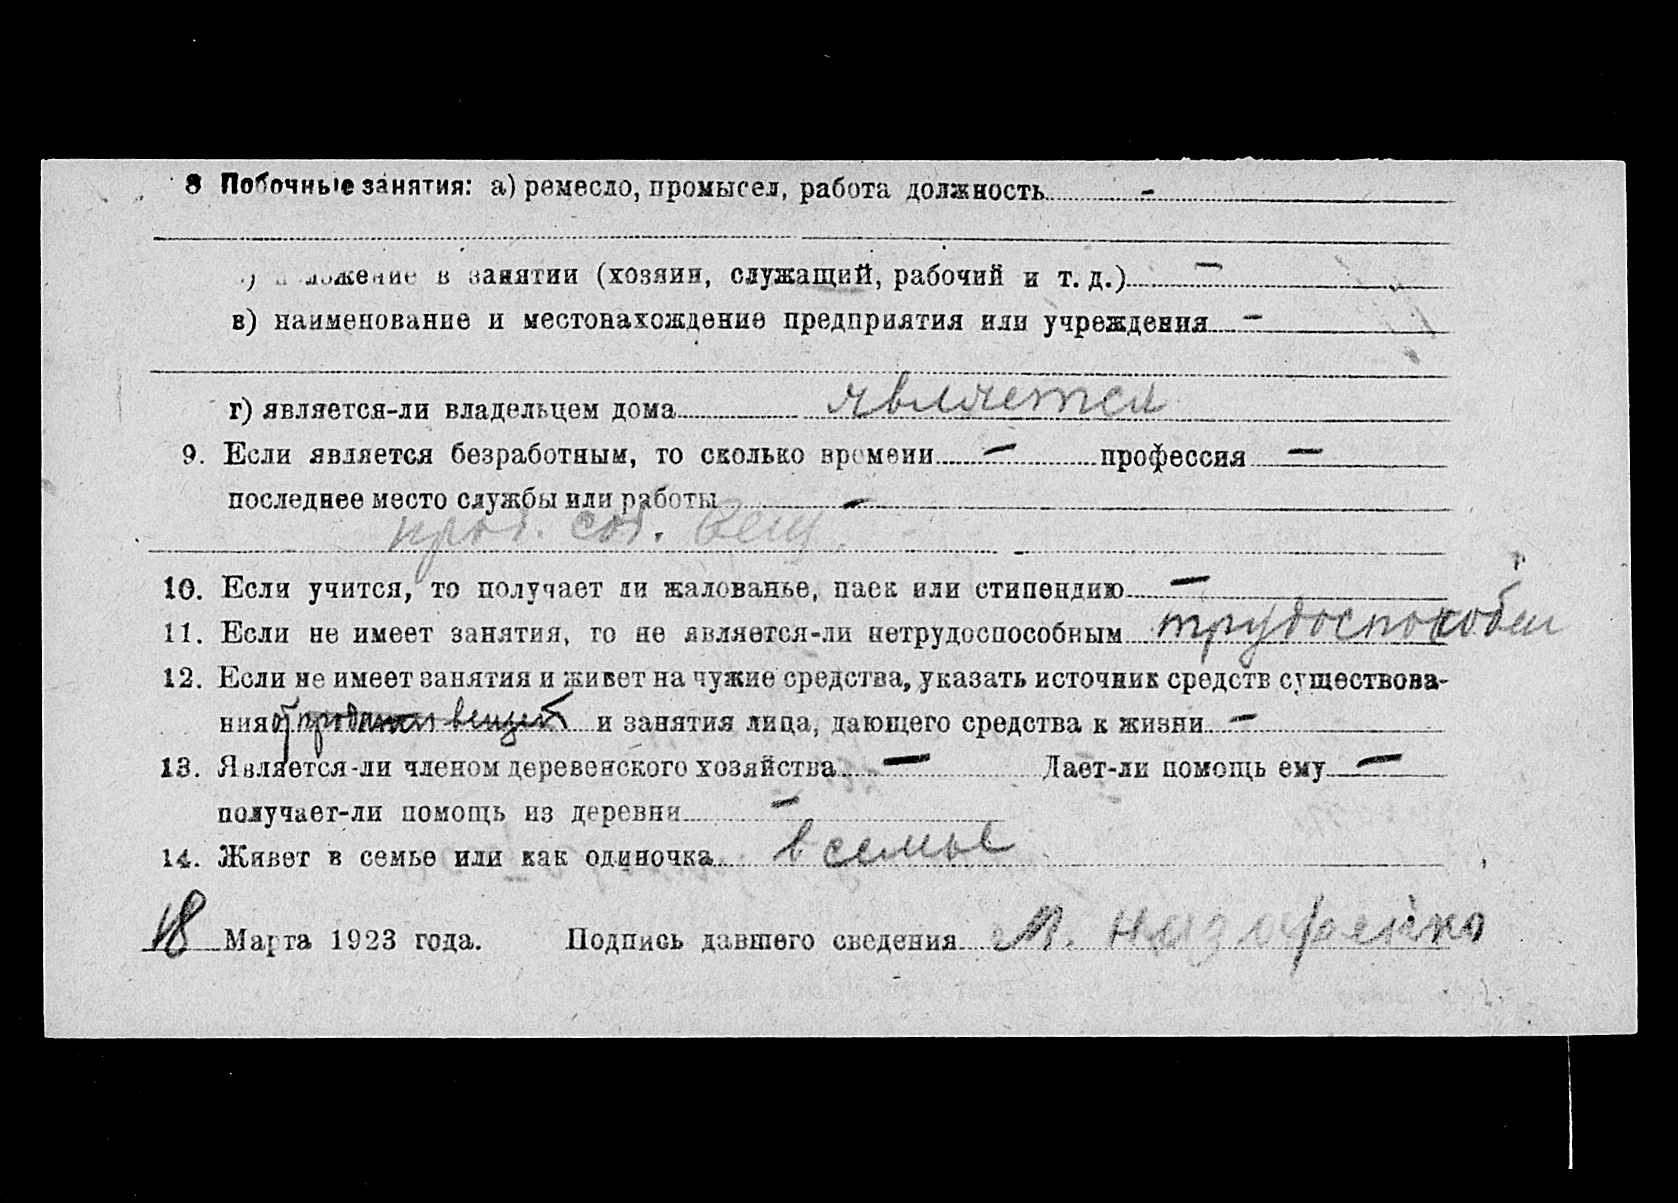 8 Побочные занятия: а) ремесло, промысел, работа должность -
) положение в занятии (хозяин, служащий, рабочий и т. д.) —
в) наименование и местонахождение предприятия или учреждения —
г) является-ли владельцем дома является
9. Если является безработным, то сколько времени — профессия —
последнее место службы или работы —
прод. соб. вещ.
10. Если учится, то получает ли жалованье, паек или стипендию —
11. Если не имеет занятия, то не является-ли нетрудоспособным трудоспособен
12. Если не имеет занятия и живет на чужие средства, указать источник средств существова-
ния от продажи вещей и занятия лица, дающего средства к жизни —
13. Является-ли членом деревенского хозяйства — Дает-ли помощь ему —
получает-ли помощь из деревни —
14. Живет в семье или как одиночка в семье
18 Марта 1923 года. Подпись давшего сведения М. Назаренко